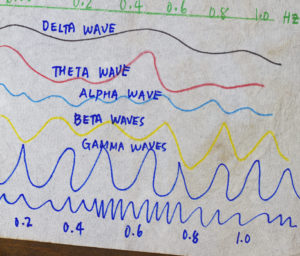 0.2 0.4 0.6 0.8 1.0 HZ
DELTA WAVE
THETA WAVE
ALPHA WAVE
BETA WAVES
GAMMA WAVES
0.2 0.4 0.6 0.8 1.0